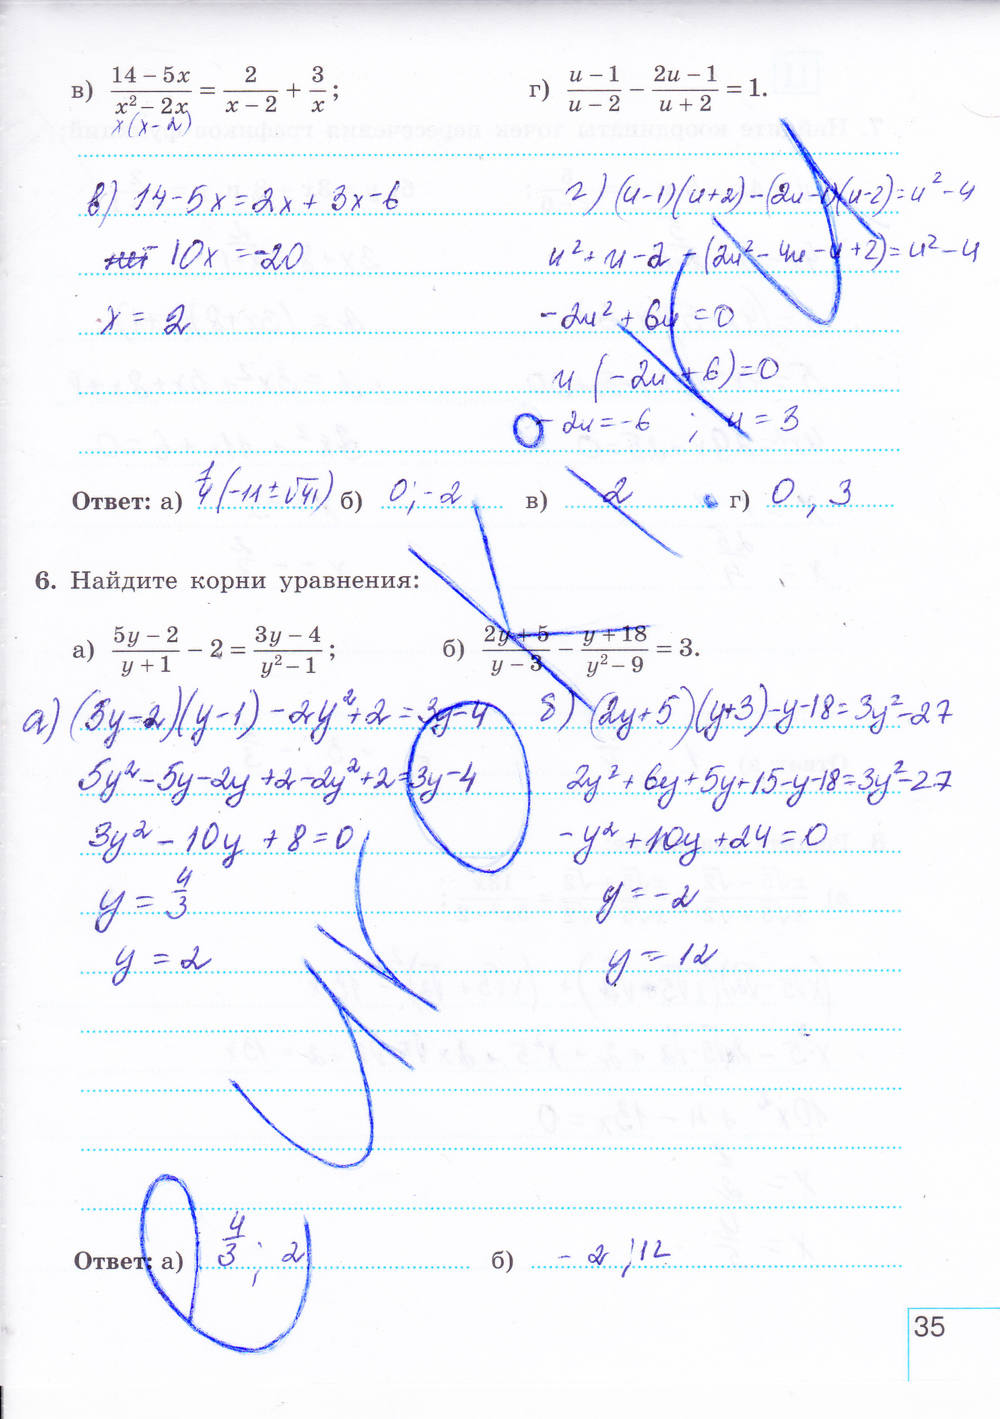 в) (14 − 5x)/(x² − 2x) = 2/(x − 2) + 3/x;
x(x-2)
г) (u − 1)/(u − 2) − (2u − 1)/(u + 2) = 1.
в) 14-5x=2x+3x-6
10x=-20
x=2
г) (u-1)(u+2)-(2u-1)(u-2)=u²-4
u²+u-2-(2u²-4u-u+2)=u²-4
-2u²+6u=0
u(-2u+6)=0
0 -2u=-6 ; u=3
Ответ: а) 1/4(-11±√41) б) 0;-2 в) 2 г) 0, 3
6. Найдите корни уравнения:
а) (5y − 2)/(y + 1) − 2 = (3y − 4)/(y² − 1);
б) (2y + 5)/(y − 3) − (y + 18)/(y² − 9) = 3.
а) (5y-2)(y-1)-2y²+2=3y-4
5y²-5y-2y+2-2y²+2=3y-4
3y²-10y+8=0
y=4/3
y=2
б) (2y+5)(y+3)-y-18=3y²-27
2y²+6y+5y+15-y-18=3y²-27
-y²+10y+24=0
y=-2
y=12
Ответ: а) 4/3; 2 б) -2;12
35